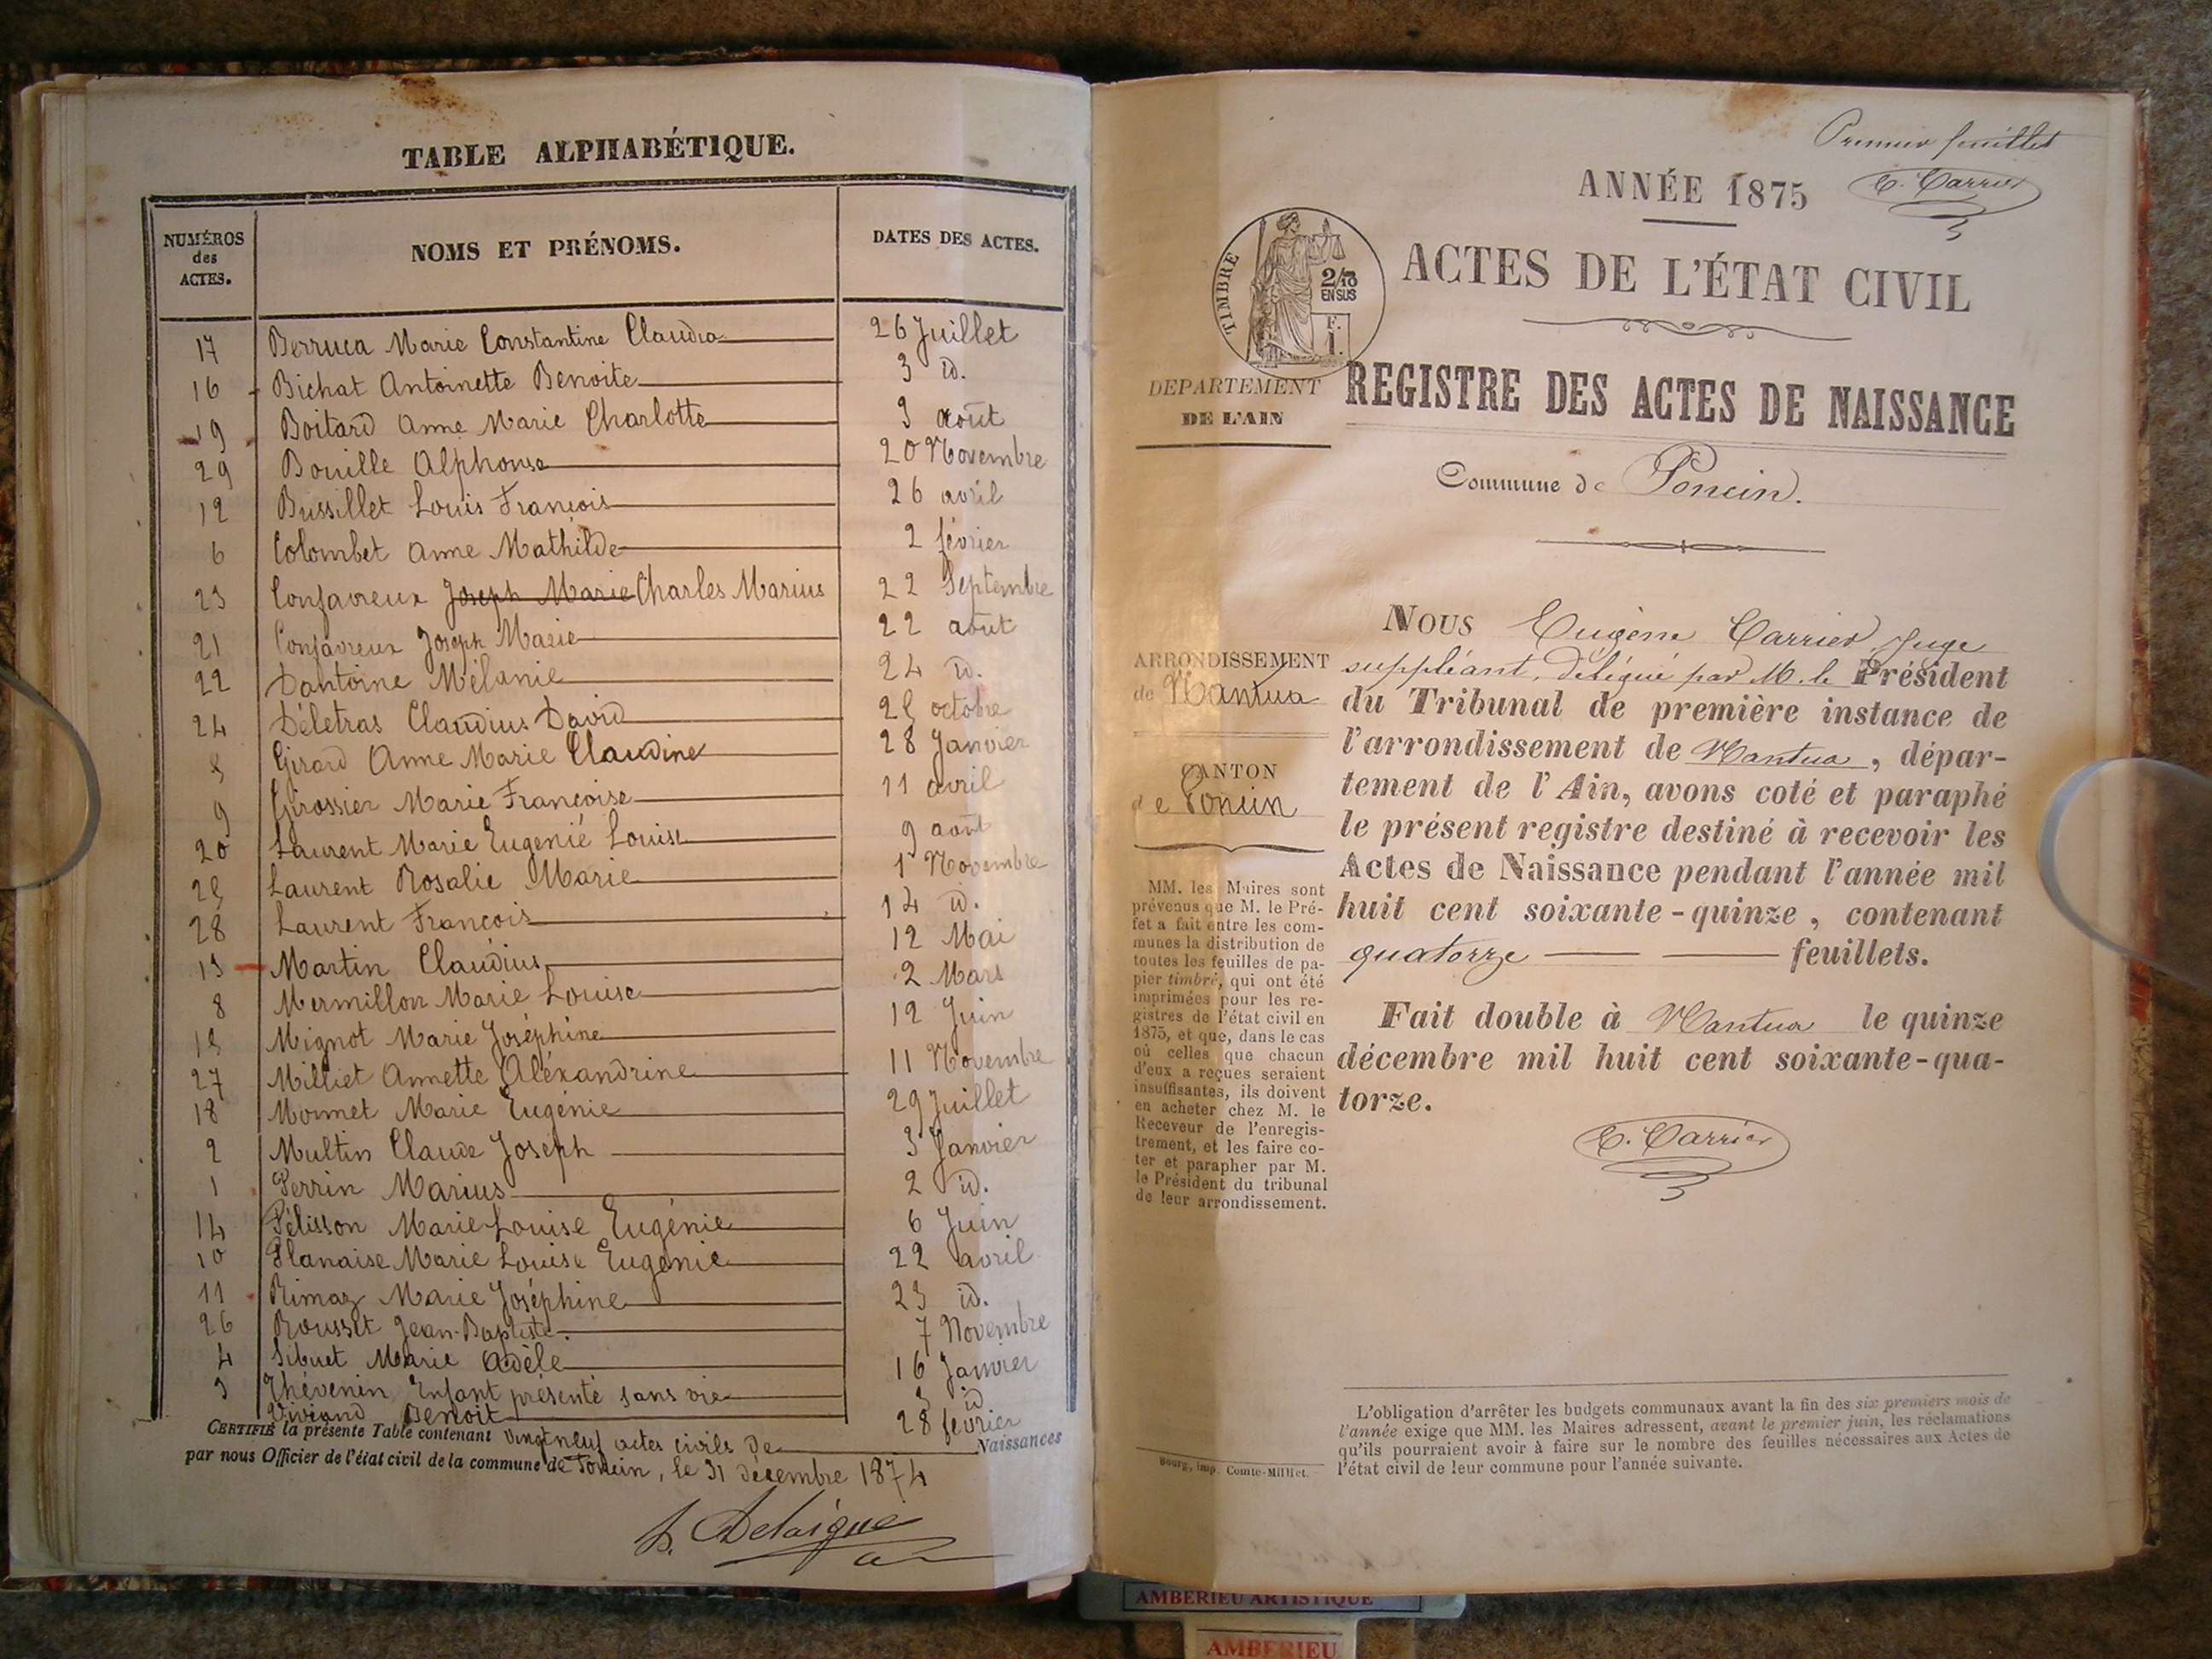 TABLE ALPHABÉTIQUE.
NUMÉROS des ACTES. NOMS ET PRÉNOMS. DATES DES ACTES.
17 Berruca Marie Constantine Claudia 26 Juillet
16 Bichat Antoinette Benoite 3 id.
19 Boitard Anne Marie Charlotte 3 août
29 Bouille Alphonse 20 Novembre
12 Bussillet Louis François 26 avril
6 Colombet Anne Mathilde 2 février
23 Confavreux Joseph Marie Charles Marius 22 Septembre
21 Confavreux Joseph Marie 22 août
22 Dantoine Mélanie 24 id.
24 Déletras Claudius David 25 octobre
5 Girard Anne Marie Claudine 28 Janvier
9 Grossier Marie Françoise 11 avril
20 Laurent Marie Eugenié Louise 9 août
25 Laurent Rosalie Marie 1er Novembre
28 Laurent François 14 id.
13 Martin Claudius 12 Mai
8 Mermillon Marie Louise 2 Mars
15 Mignot Marie Joséphine 12 Juin
27 Milliet Annette Aléxandrine 11 Novembre
18 Monnet Marie Eugénie 29 Juillet
2 Multin Claude Joseph 3 Janvier
1 Perrin Marius 2 id.
14 Pélisson Marie Louise Eugénie 6 Juin
10 Planaise Marie Louise Eugénie 22 avril
11 Rimaz Marie Joséphine 23 id.
26 Rousset Jean-Baptiste. 7 Novembre
4 Sibuet Marie Adèle 16 Janvier
3 Thévenin Enfant présenté sans vie 3 id
Viviand Benoit 28 fevrier
CERTIFIÉ la présente Table contenant vingt neuf actes civils de Naissances
par nous Officier de l'état civil de la commune de Poncin, le 31 décembre 1874
Delaigue
Premier feuillet
E. Carrier
ANNÉE 1875
TIMBRE
2/10
EN SUS
F.
1.
ACTES DE L'ÉTAT CIVIL
DÉPARTEMENT
DE L'AIN
REGISTRE DES ACTES DE NAISSANCE
Commune de Poncin.
ARRONDISSEMENT
de Nantua
CANTON
de Poncin
MM. les Maires sont
prévenus que M. le Pré-
fet a fait entre les com-
munes la distribution de
toutes les feuilles de pa-
pier timbré, qui ont été
imprimées pour les re-
gistres de l'état civil en
1875, et que, dans le cas
où celles que chacun
d'eux a reçues seraient
insuffisantes, ils doivent
en acheter chez M. le
Receveur de l'enregis-
trement, et les faire co-
ter et parapher par M.
le Président du tribunal
de leur arrondissement.
NOUS Eugène Carrier, Juge
suppléant, délégué par M. le Président
du Tribunal de première instance de
l'arrondissement de Nantua, dépar-
tement de l'Ain, avons coté et paraphé
le présent registre destiné à recevoir les
Actes de Naissance pendant l'année mil
huit cent soixante-quinze, contenant
quatorze feuillets.
Fait double à Nantua le quinze
décembre mil huit cent soixante-qua-
torze.
E. Carrier
L'obligation d'arrêter les budgets communaux avant la fin des six premiers mois de
l'année exige que MM. les Maires adressent, avant le premier juin, les réclamations
qu'ils pourraient avoir à faire sur le nombre des feuilles nécessaires aux Actes de
l'état civil de leur commune pour l'année suivante.
Bourg, imp. Comte-Milliet.
AMBERIEU ARTISTIQUE
AMBERIEU